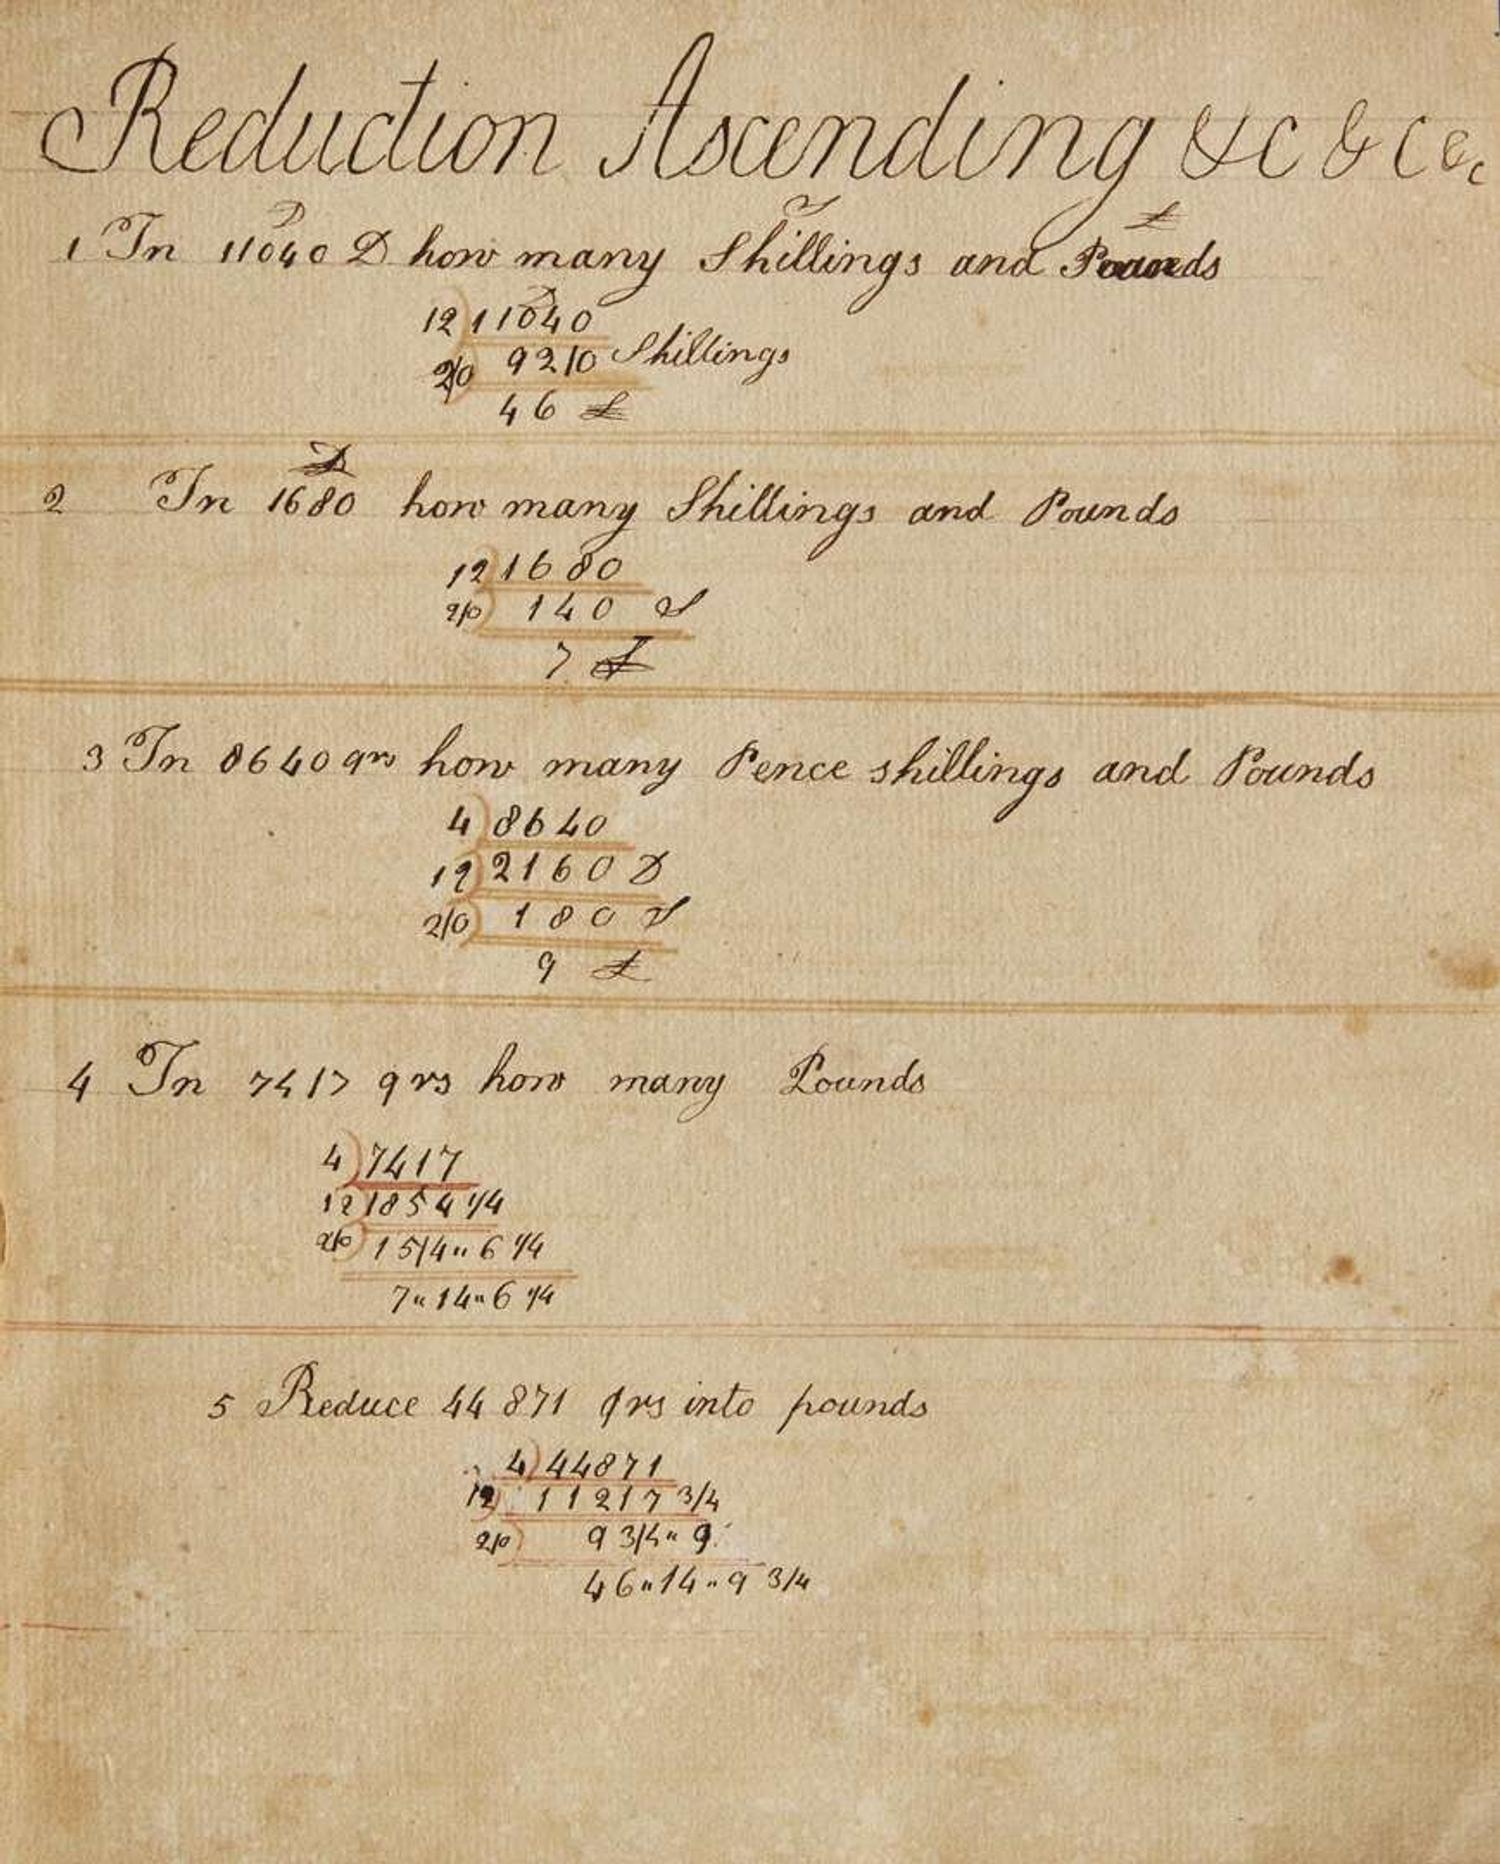 Reduction Ascending &c &c &c
D S £
1 In 11040 D how many Shillings and Pounds
D
12) 11040
2/0) 92/0 Shillings
46 £
D
2 In 1680 how many Shillings and Pounds
12) 1680
2/0) 140 S
7 £
3 In 8640 qrs how many Pence shillings and Pounds
4) 8640
12) 2160 D
2/0) 180 S
9 £
4 In 7417 qrs how many Pounds
4) 7417
12) 1854 1/4
2/0) 15/4 " 6 1/4
7 " 14 " 6 1/4
5 Reduce 44871 qrs into pounds
4) 44871
12) 11217 3/4
2/0) 93/4 " 9
46 " 14 " 9 3/4